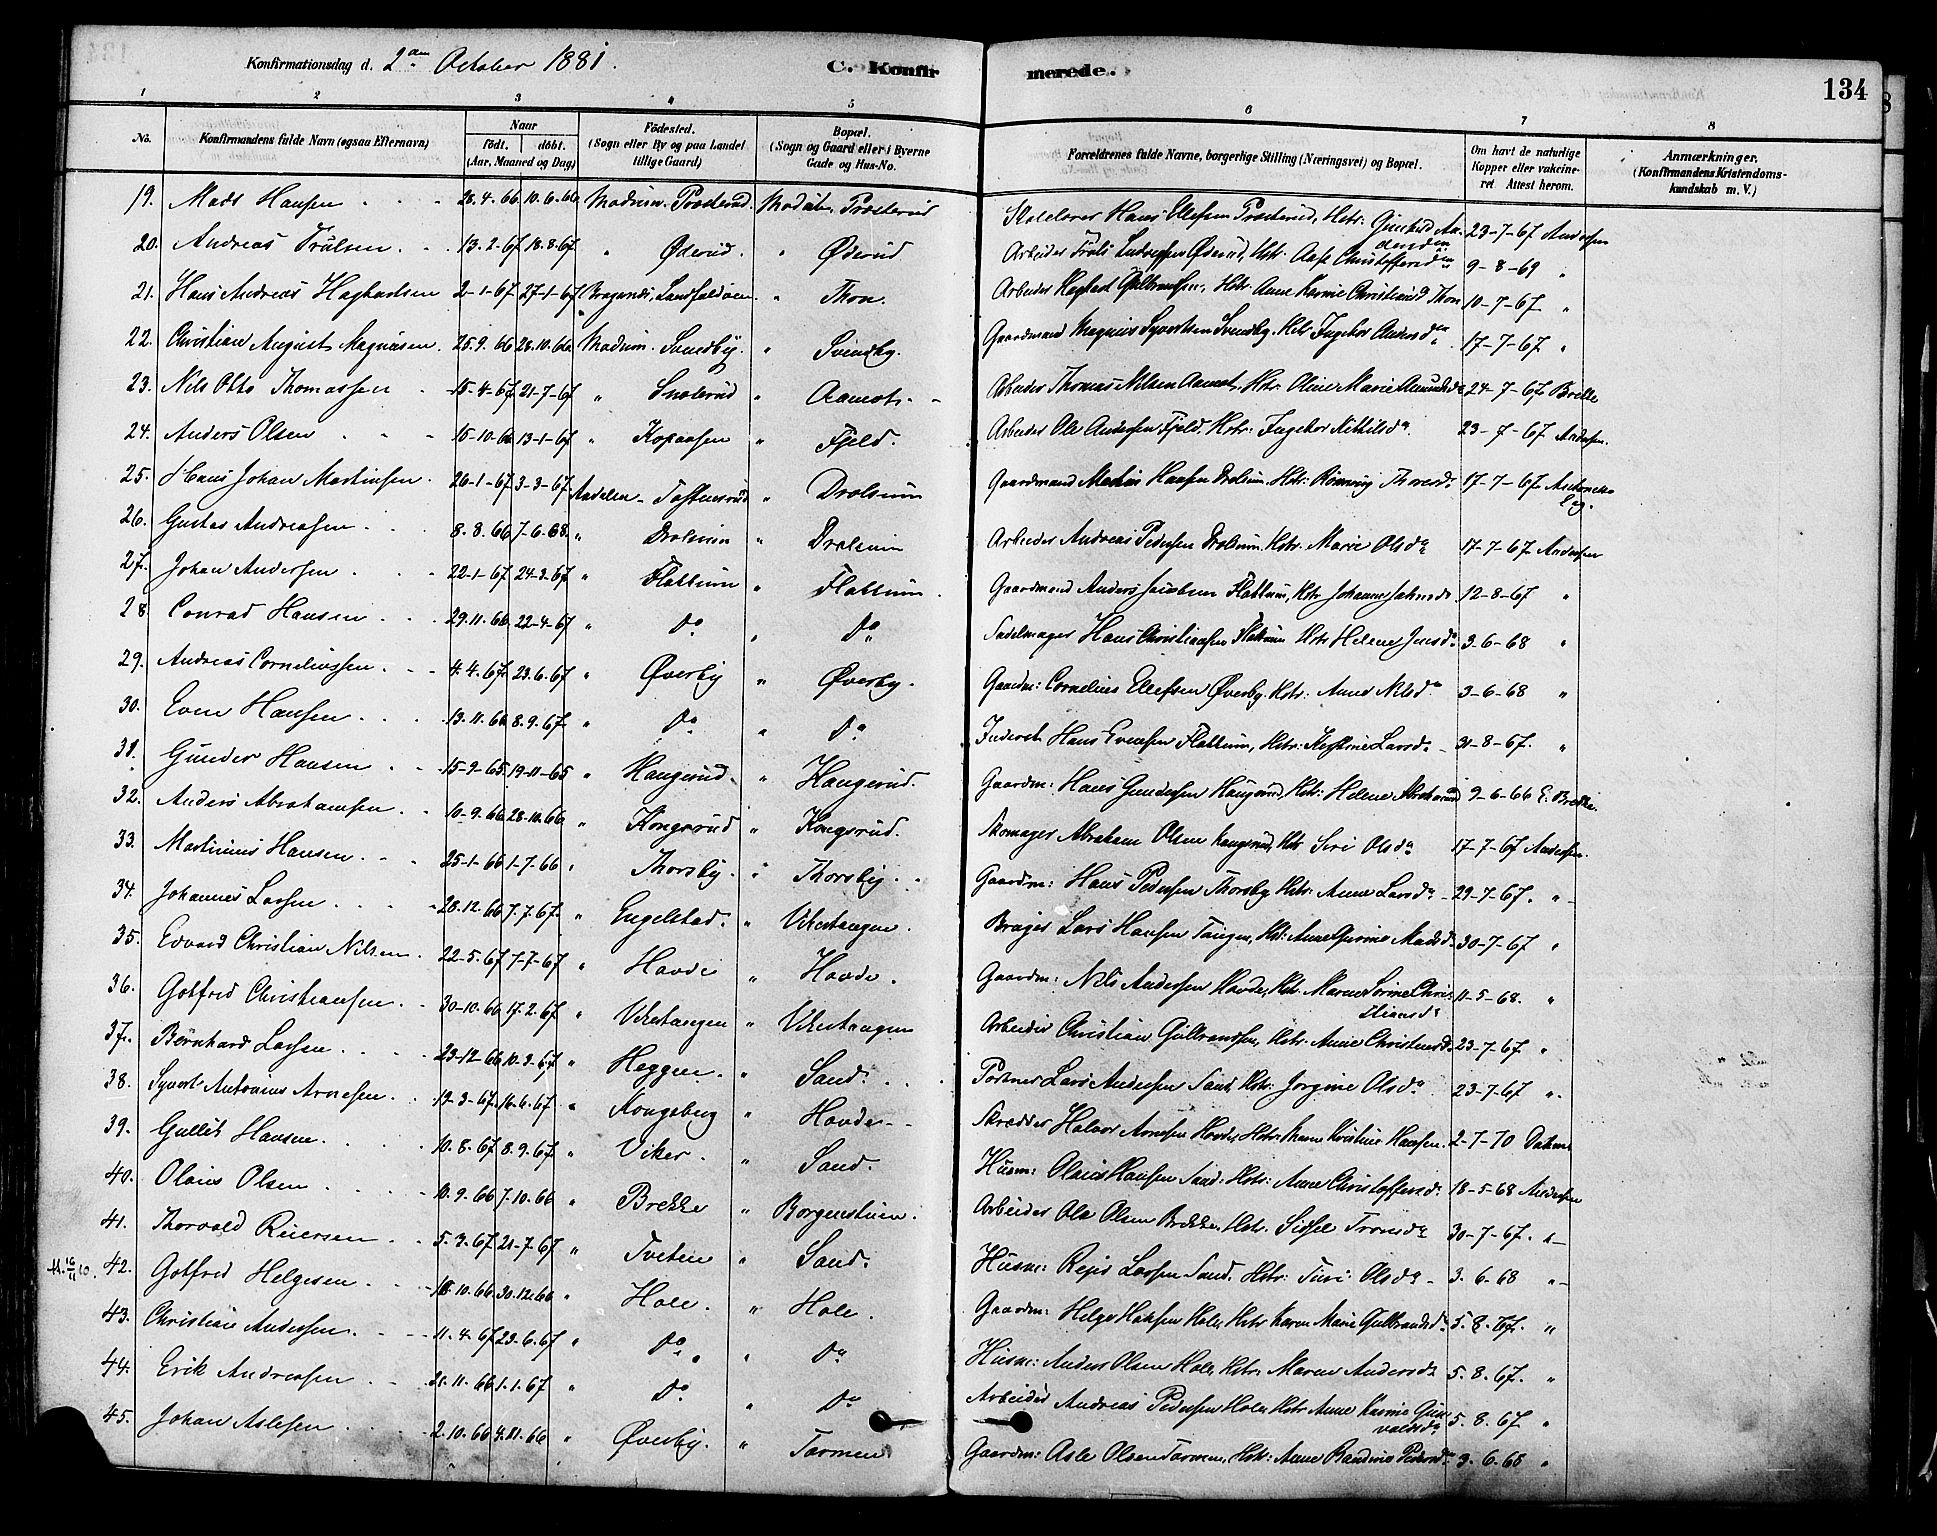 Konfirmationsdag d. 2den October 1881.
C. Konfirmerede.
134
1 2 3 4 5 6 7 8
No. Konfirmandens fulde Navn (ogsaa Efternavn) Naar født. døbt. (Aar, Maaned og Dag) Födested. (Sogn eller By og paa Landet tillige Gaard) Bopæl. (Sogn og Gaard eller i Byerne Gade og Hus-No. Forældrenes fulde Navne, borgerlige Stilling (Næringsvei) og Bopæl. Om havt de naturlige Kopper eller vakcineret. Attest herom. Anmærkninger. (Konfirmandens Kristendomskundskab m. V.)
19. Mads Hansen 28-4-66 10-6-66 Modum. Præsterud. Modum. Præsterud Hans Olefsen Præsterud, Hstr: Gunhild 23-7-67 Andersen
20. Andreas Trulsen 13-2-67 18-8-67 " Øderud. " Øderud Arbeider Truls Øderud, Hstr. Aase Christoffersd. 9-8-69 "
21. Hans Andreas Hagbartsen 2-1-67 27-1-67 Bragernes, Landfaldøen. " Thon. Arbeider Hagbart Gulbransen, Hstr. Anne Karine Christiansd. Thon 10-7-67 "
22. Christian August Magnusen 25.9.66 28.10.66 Modum. Svendby. " Svendby. Gaardmand Magnus Syvertsen Svendby. Hstr Ingebor Andersd. 17-7-67 "
23. Nils Otto Thomassen 15-4-67 21-7-67 " Snelerud " Aamot Arbeider Thomas Nilsen Aamot, Hstr. Oline Marie Amundsd. 24-7-67 Brekke
24. Anders Olsen 15-10-66 13-1-67 " Kopaasen " Fjeld. Arbeider Ole Andersen Fjeld. Hstr: Ingebor Nethilsd. 23-7-67 Andersen.
25. Hans Johan Martinsen 26-1-67 3-3-67 Aadalen. Tostensrud " Drolsum Gaardmand Martin Hansen Drolsum. Hstr: Rønnaug Thoresd. 17-7-67
26. Gustav Andreasen 8.8.66 7-6-68 " Drolsum " Drolsum Arbeider Andreas Pedersen Drolsum. Hstr. Marie Olsd. 17-7-67 Andersen
27. Johan Andersen 22-1-67 24-3-67 " Flattum " Flattum. Gaardmand Anders Jacobsen Flattum, Hstr Johanne 12-8-67 "
28. Conrad Hansen 29.11.66 22-4-67 " Do " Do Sadelmager Hans Christiansen Flattum Hstr Helene Jensd. 3-6-68 "
29. Andreas Corneliussen 4.4.67 23.6.67 " Øverby " Øverby. Gaardm: Cornelius Elefsen Øverby. Hstr: Anne Nilsd. 3-6-68 "
30. Even Hansen 13.11.66 8.9.67 " Do " Do Inderst Hans Evensen Flattum, Hstr: Kjestine Larsd. 31-8-67. "
31. Gunder Hansen 15-9-65 19-11-65 " Haugerud " Haugerud. Gaardm: Hans Gundersen Haugerud, Hstr: Helene 9-6-66 E. Brekke.
32. Anders Abrahamsen 10-9.66 28-10.66 " Kongsrud " Kongsrud. Skomager Abraham Olsen Kongsrud, Hstr Siri Olsd. 17-7-67 Andersen.
33. Martinius Hansen 25-1-66 1-7-66 " Thorsby. " Thorsby. Gaardm: Hans Pedersen Thorsby Hstr: Anne Larsd. 29-7-67. "
34. Johannes Larsen 28.12.66 7.7.67 " Engelstad. " Vikertangen. Lars Hansen Tangen, Hst: Anne Gurine Madsd. 30-7-67 "
35. Edvard Christian Nilsen 22-5.67 7-7-67 " Hovde " Hovde. Gaardm: Nils Andersen Hovde, Hst. Maren Sørine Christiansd. 11-5-68. "
36. Gotfred Christiansen 30-10.66 17.2.67 " Vikertangen " Vikertangen Arbeider Christian Gulbrandsen, Hstr. Anne Christensd. 23-7-67 "
37. Bernhard Larsen 23-12-66 10.3.67 " Heggen. " Sand. Lars Andersen Sand, Hstr: Jorgine Olsd. 23-7-67 "
38. Syvert Antonius Arnesen 19-3-67 16.6.67 " Kongsberg " Hovde Skrædder Halvor Arnesen Hovde, Hstr: Kristine Hansen. 2-7-70
39. Gullik Hansen 10.8.67 8.9.67 " Viker. " Sand. Husm: Olaus Hansen Sand. Hstr: Anne Christoffersd. 18-5-68 Andersen
40. Olaus Olsen 10.9.66 7.10.66 " Brekke " Borgerstuen. Arbeider Ole Olsen Brekke, Hstr. Sissel Tronsd. 30-7-67.
41. Thorvald Reiersen 5.3.67 21-7.67 " Tveten " Sand. Husm: Rejer Larsen Sand. Hstr: Turi Olsd. 3.6.68 "
42. Gotfred Helgesen 10.66 30.12.66 " Hole. " Hole. Gaardm: Helge Hansen Hole, Hstr Karen Marie Gulbrandsd. 5.8.67. "
43. Christian Andersen 11.4.67 23.6.67 " Do " Do Husm: Anders Olsen Hole, Hstr. Maren Andersd. 5.8.67. "
44. Erik Andreasen 21.11.66 1.1.67 " Do " Do Arbeider Andreas Pedersen Hole Hstr Anne Karine Gunvalsd. 5.8.67 "
45. Johan Aslesen 2.10.66 4.11.66 " Øverby. " Tormen. Gaardm: Asle Olsen Tormen, Hstr: Anne Randine Pedersd. 3.6.68 "